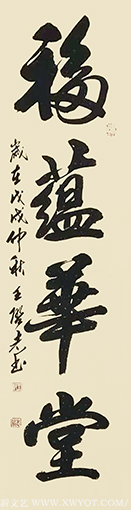 福蕴華堂
歲在戊戌仲秋王階志书
WWW.XWYOT.COM